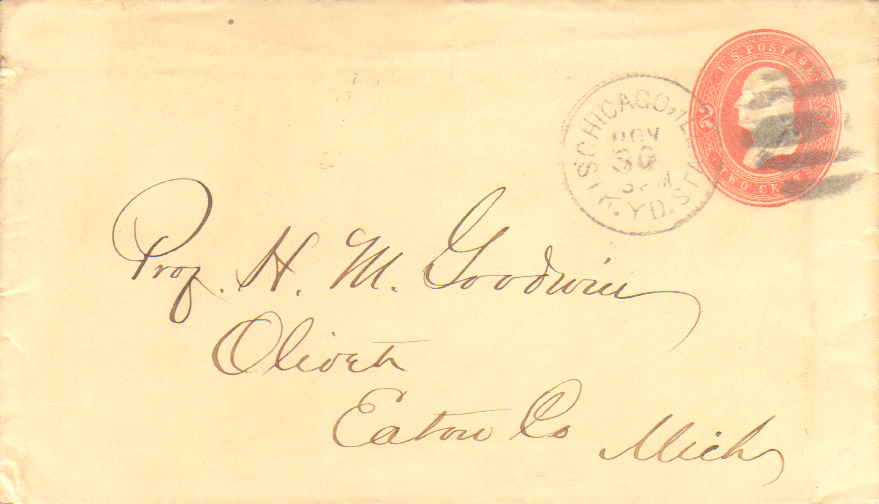 U.S. POSTAGE
2
TWO CENTS
CHICAGO, ILL.
NOV
30
3 PM
S'T'K. Y'D. STA
Prof. H. M. Goodwin
Olivet
Eaton Co Mich